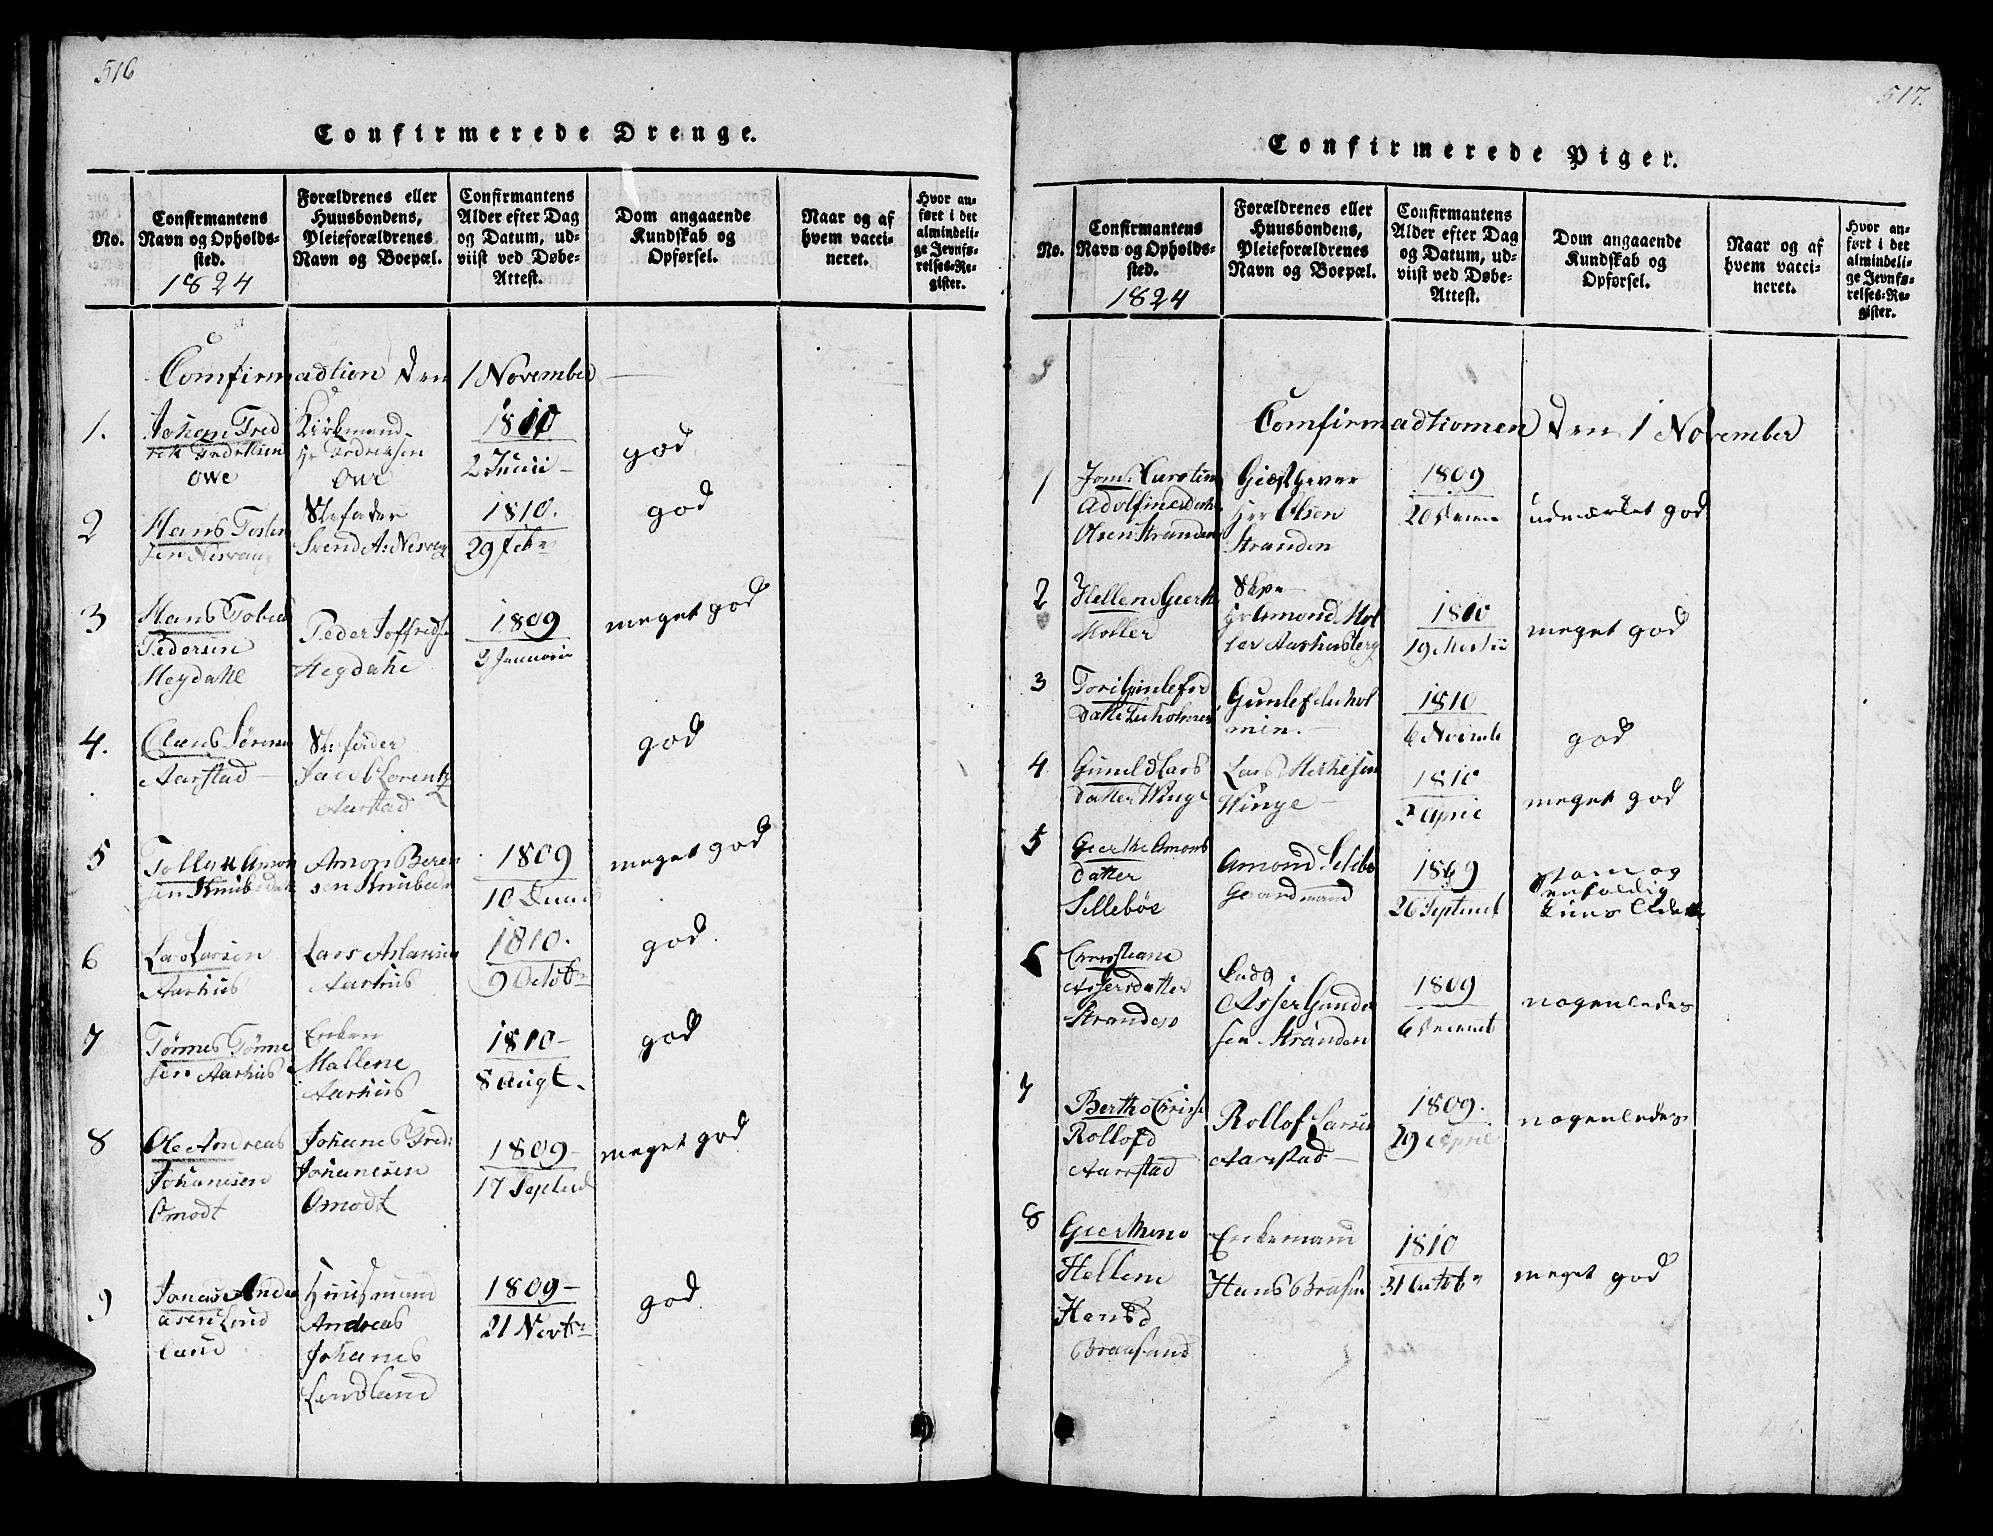 516
Confirmerede Drenge.
No.
Confirmantens
Navn og Opholds-
sted.
1824
Forældrenes eller
Huusbondens,
Pleieforældrenes
Navn og Boepæl.
Confirmantens
Alder efter Dag
og Datum, ud-
viist ved Døbe-
Attest.
Dom angaaende
Kundskab og
Opførsel.
Naar og af
hvem vacci-
neret.
Hvor an-
ført i det
almindeli-
ge Jevnfø-
relses-Re-
gister.
Comfirmadtion den 1 November
1.
Johan Fred
rik Fredriksen
Owe
Kirkmand
Hr Fredriksen
Owe
1810
2 Junii
god
2
Hans Tosten
sen Nesvaag
Stefader
Svend As: Nesvag
1810.
29 Febr
god
3
Hans Tobias
Pedersen
Hegdahl
Peder Joffreds
Hegdahl
1809
2 Januarii
meget god
4.
Claus Sørensen
Aarstad
Stefader
Jacob Lorentz
Aarstad
god
5
Tollak Amon
sen Knubedal
Amon Beren
sen Knubedal
1809
10
meget god
6
Lars Larsen
Aarhus
Lars Aslaksen
Aarhus
1810.
9 Octobr
god.
7
Tørmes Tørme
sen Aarhus
Enken
Mallene
Aarhus
1810
8 Augt.
god
8
Ole Andreas
Johanesen
Omodt
Johanes Fred:
Johanesen
Omodt
1809
17 Septemb
meget god
9
Jonas Andre
asen Lind
land
Huusmand
Andreas
Johanes
Lindland
1809
21 Novbr
god.
517.
Confirmerede Piger.
No.
Confirmantens
Navn og Opholds-
sted.
1824
Forældrenes eller
Huusbondens,
Pleieforældrenes
Navn og Boepæl.
Confirmantens
Alder efter Dag
og Datum, ud-
viist ved Døbe-
Attest.
Dom angaaende
Kundskab og
Opførsel.
Naar og af
hvem vacci-
neret.
Hvor an-
ført i det
almindeli-
ge Jevnfø-
relses-Re-
gister.
Comfirmadtionen den 1 November
1
Carstine
Adolfine
Olsen Stranden
Giestgever
Hr Olsen
Stranden
1809
20
udmærket god
2
Hellene Geerthe
Moller
Skpr
Hr Amond Mol
ler Aarhusberg
1810
19 Martii
meget god
3
Tori Gunlefs
datter
Gunlef
1810
6 Novemb
god
4
Gunild Lars
datter Winge
Lars
Winge
1810
2 April
meget god
5
Geerthe Amons
datter
Sillebøe
Amond Selebø
Gaardmand
1809
26 Septemb
og
enfoldig
6
Christiane
Assersdatter
Stranden
Lods
Asser Gunder
sen Stranden
1809
6 Decemb
nogenledes
7
Berthe
Rollofd
Aarstad
Rollof Larsen
Aarstad
1809.
29 April
nogenledes
8
Geerthine
Hellene
Hansd
Braasund
Enkemand
Hans
1810
31 Octobr
meget god